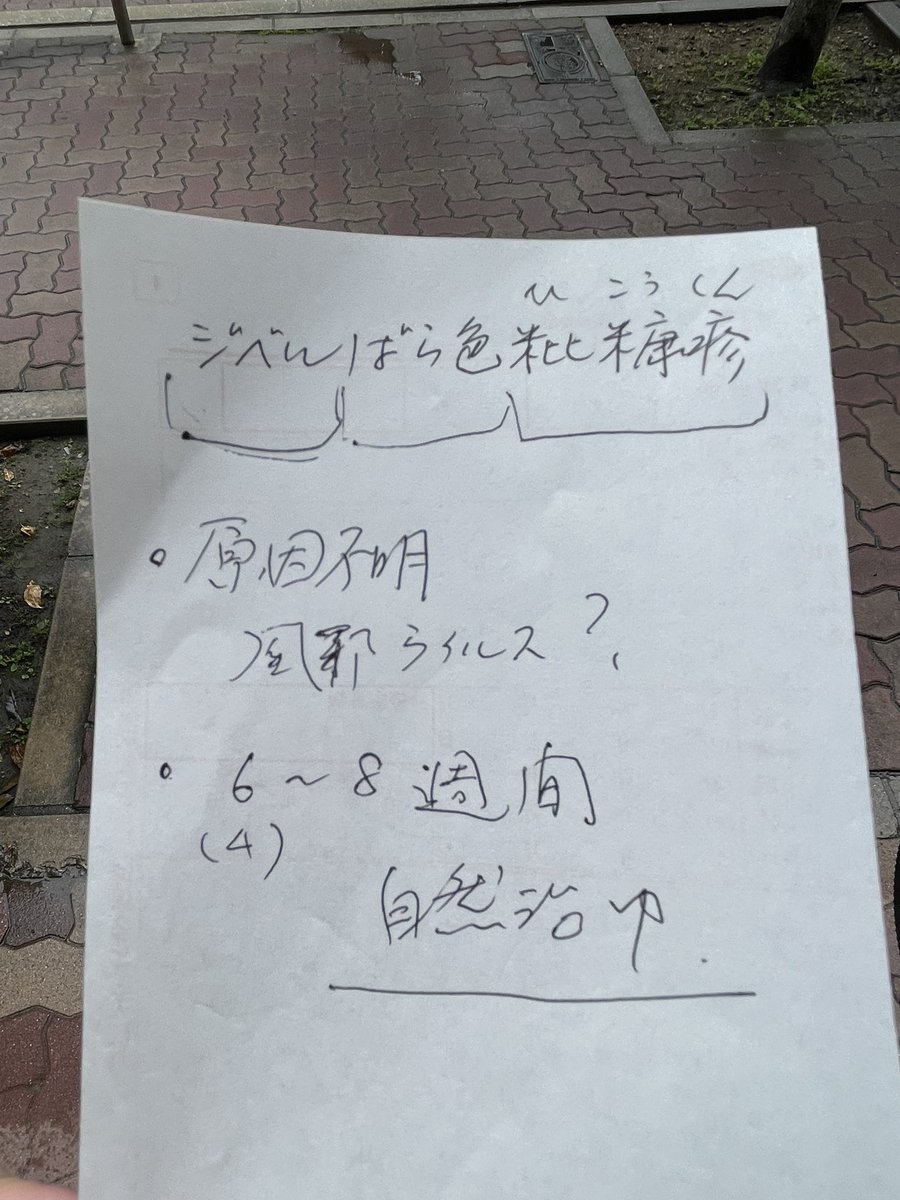 ひこうしん
ジベルばら色粃糠疹
・原因不明
風邪ウイルス?
・6〜8週間
(4)
自然治ゆ.